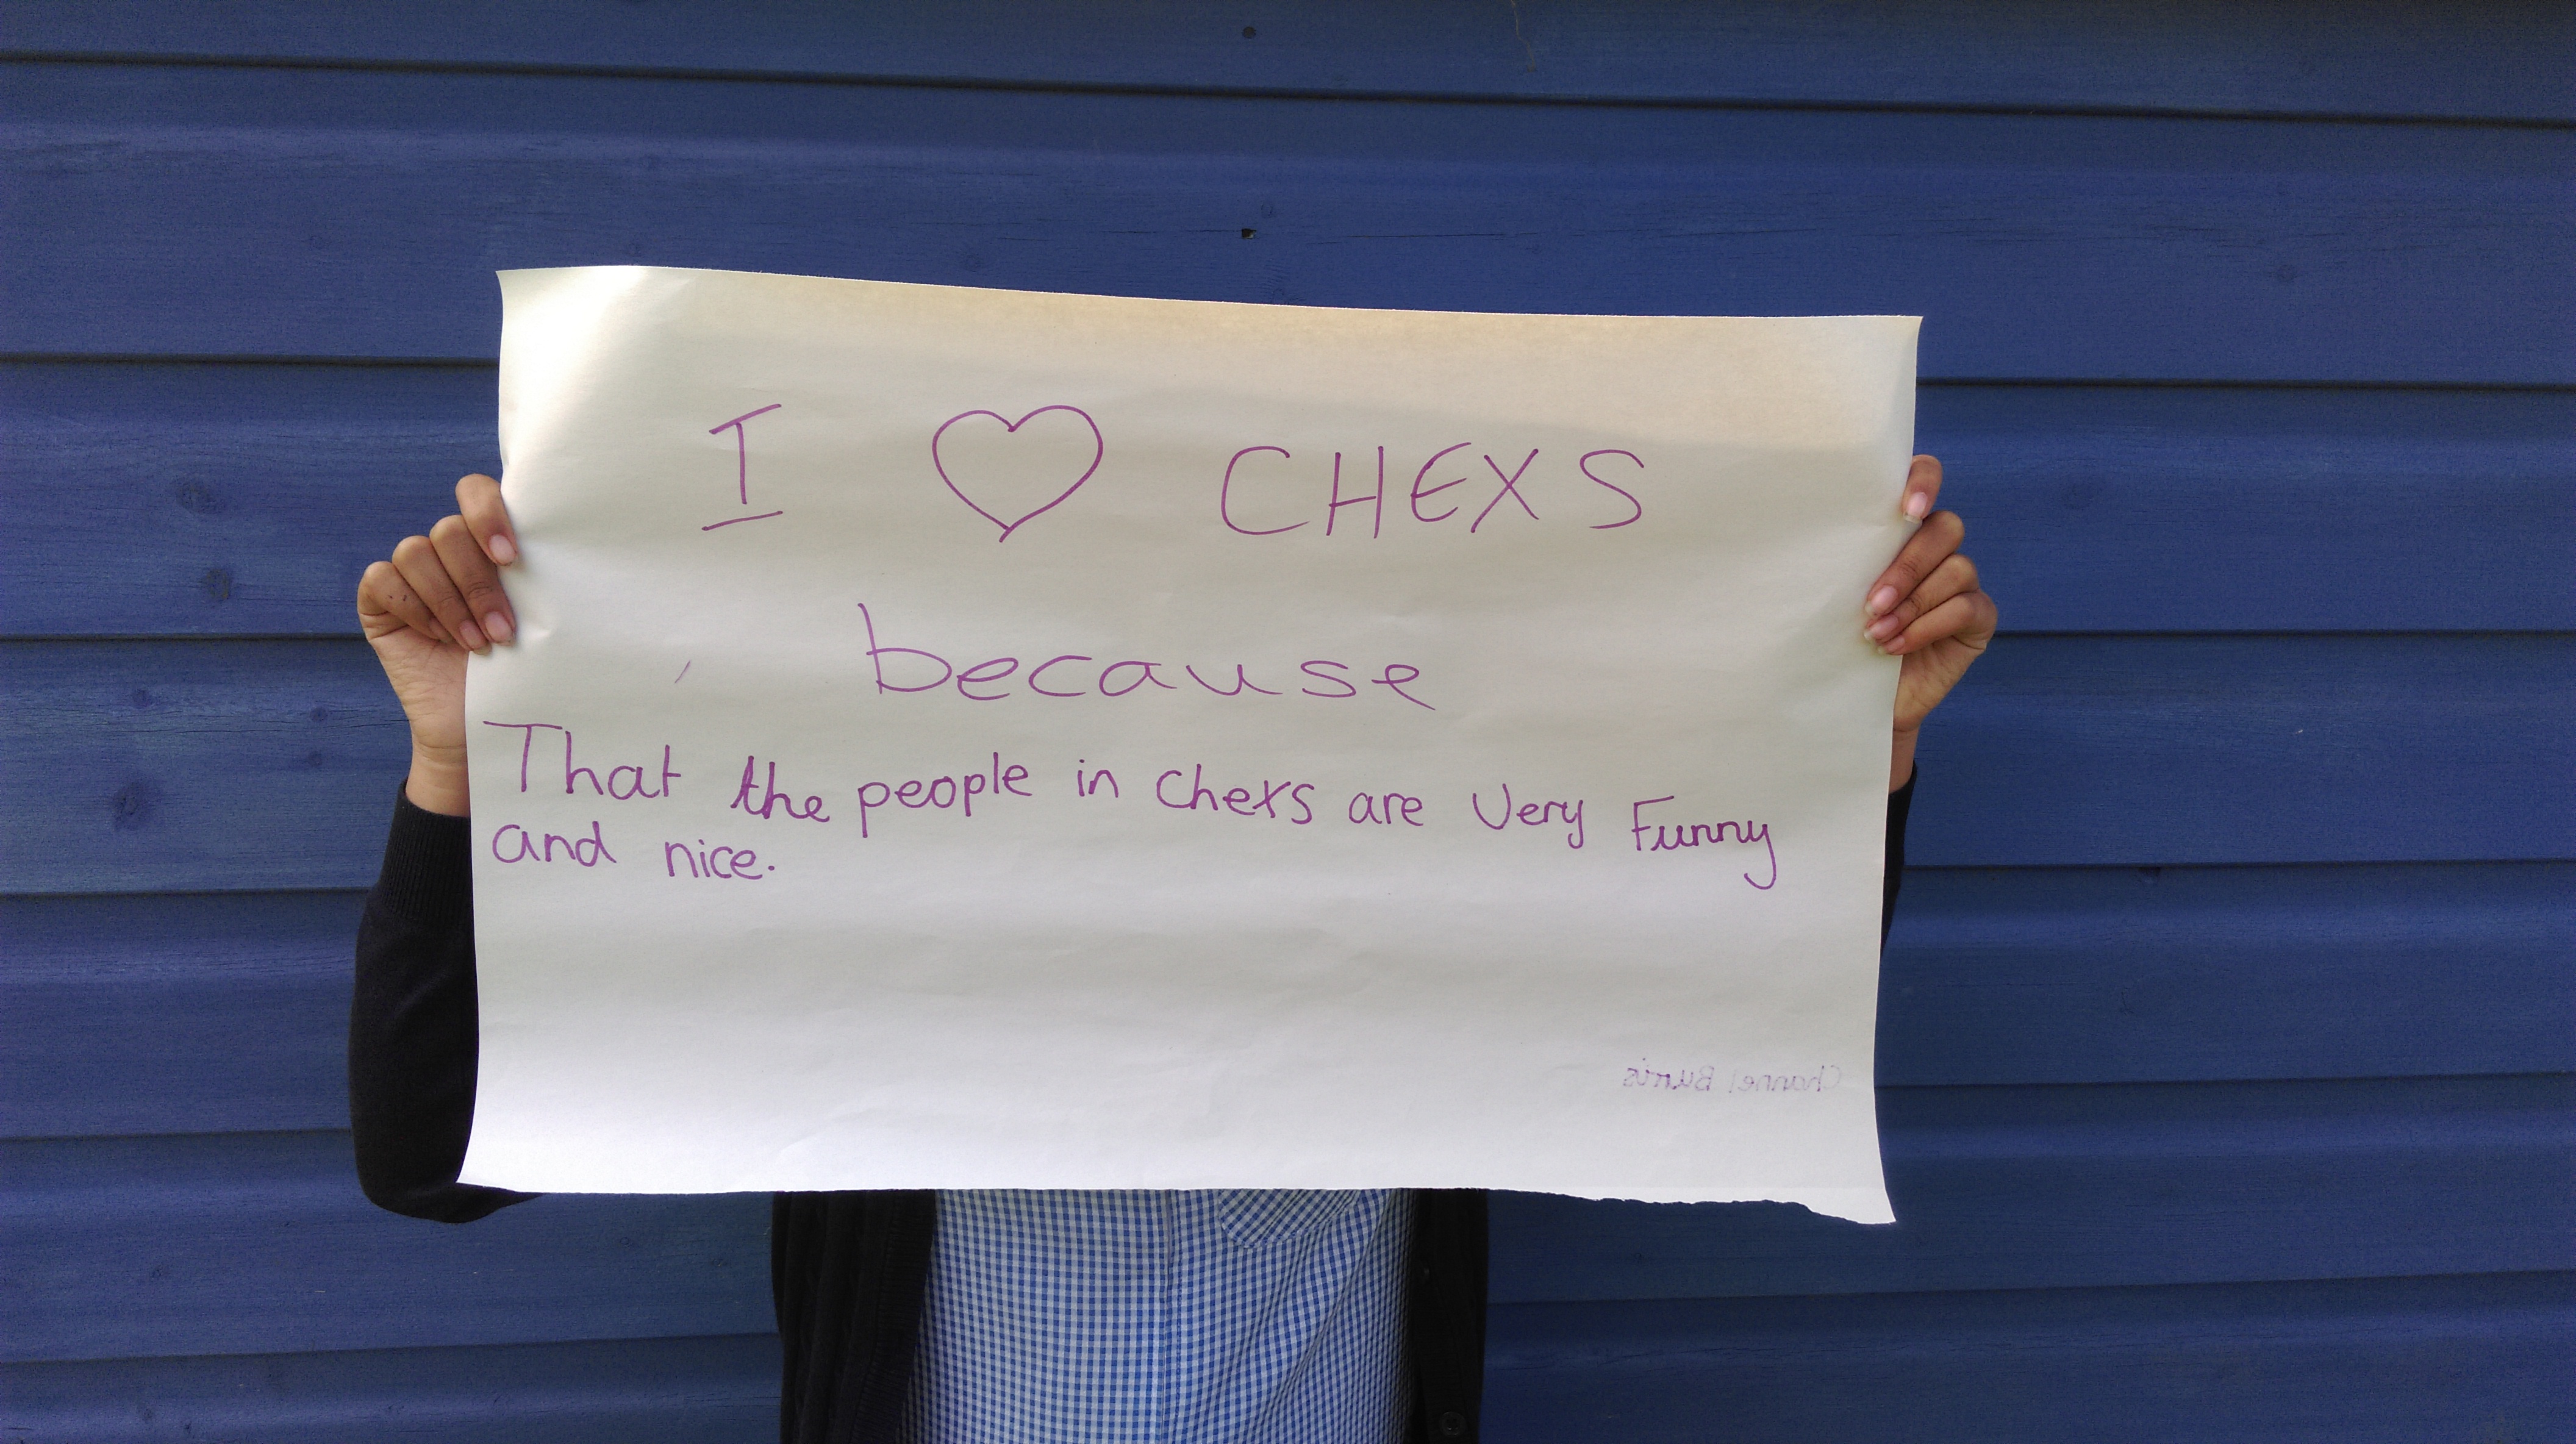 I ♡ CHEXS
because
That the people in chexs are very Funny
and nice.